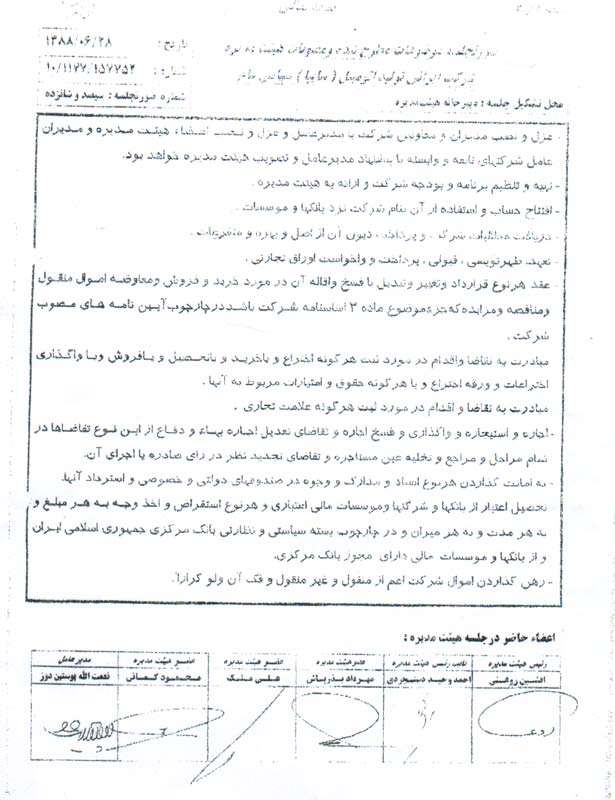 تاریخ : ۱۳۸۸/۰۶/۲۸
صورتجلسه موضوعات مطرح شده ومصوبات هیئت مدیره
شماره : ۱۰/۱۱۷۷/۱۵۷۷۵۲
شرکت ایرانی تولید اتومبیل ( سایپا ) سهامی عام
شماره صورتجلسه : سیصد و شانزده
محل تشکیل جلسه : دبیرخانه هیئت مدیره
- عزل و نصب مدیران و معاونین شرکت با مدیرعامل و عزل و نصب اعضاء هیئت مدیره و مدیران
عامل شرکتهای تابعه و وابسته با پیشنهاد مدیرعامل و تصویب هیئت مدیره خواهد بود.
- تهیه و تنظیم برنامه و بودجه شرکت و ارائه به هیئت مدیره .
- افتتاح حساب و استفاده از آن بنام شرکت نزد بانکها و موسسات .
- دریافت مطالبات شرکت و پرداخت دیون آن از اصل و بهره و متفرعات .
- تعهد، ظهرنویسی ، قبولی ، پرداخت و واخواست اوراق تجارتی .
- عقد هرنوع قرارداد وتغییر وتبدیل یا فسخ واقاله آن در مورد خرید و فروش ومعاوضه اموال منقول
ومناقصه ومزایده که جزءموضوع ماده ۳ اساسنامه شرکت باشد درچارچوب آیین نامه های مصوب
شرکت .
مبادرت به تقاضا واقدام در مورد ثبت هرگونه اختراع و یاخرید و یاتحصیل و یافروش ویا واگذاری
اختراعات و ورقه اختراع و یا هرگونه حقوق و امتیازات مربوط به آنها .
مبادرت به تقاضا و اقدام در مورد ثبت هرگونه علامت تجاری .
- اجاره و استیجاره و واگذاری و فسخ اجاره و تقاضای تعدیل اجاره بهاء و دفاع از این نوع تقاضاها در
تمام مراحل و مراجع و تخلیه عین مستاجره و تقاضای تجدید نظر در رای صادره یا اجرای آن.
- به امانت گذاردن هرنوع اسناد و مدارک و وجوه در صندوقهای دولتی و خصوصی و استرداد آنها.
تحصیل اعتبار از بانکها و شرکتها وموسسات مالی اعتباری و هرنوع استقراض و اخذ وجه به هر مبلغ و
به هر مدت و به هر میزان و در چارچوب بسته سیاستی و نظارتی بانک مرکزی جمهوری اسلامی ایران
و از بانکها و موسسات مالی دارای مجوز بانک مرکزی.
- رهن گذاردن اموال شرکت اعم از منقول و غیر منقول و فک آن ولو کراراً.
اعضاء حاضر در جلسه هیئت مدیره :
رئیس هیئت مدیره نایب رئیس هیئت مدیره عضو هیئت مدیره عضو هیئت مدیره عضو هیئت مدیره مدیرعامل
افشین روغنی احمد وحید دستجردی مهرداد بذرپاش علی ملک محمود کمانی نعمت الله پوستین دوز